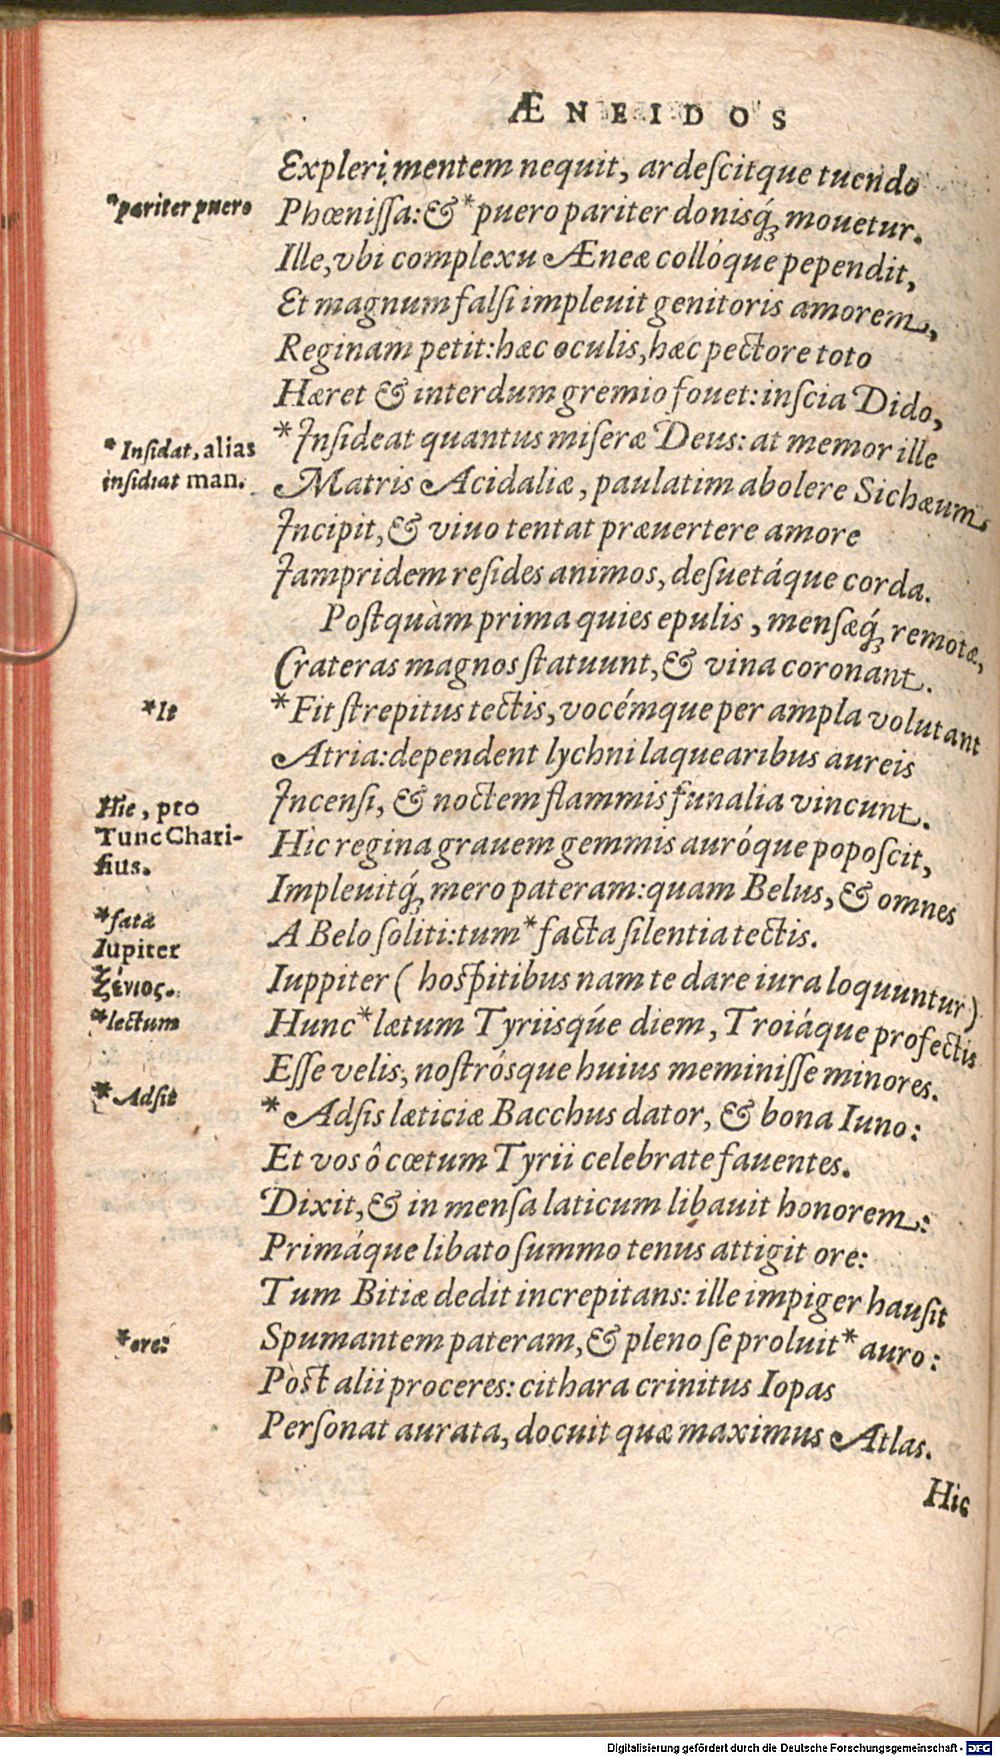 ÆNEIDOS
Expleri mentem nequit, ardeſcitque tuendo
*pariter puero
Phœniſſa: & *puero pariter donisq́; mouetur.
Ille, vbi complexu Æneæ collóque pependit,
Et magnum falſi impleuit genitoris amorem,
Reginam petit: hæc oculis, hæc pectore toto
Hæret & interdum gremio fouet: inſcia Dido,
* Inſidat, alias
inſidiat man.
*Inſideat quantus miſeræ Deus: at memor ille
Matris Acidaliæ, paulatim abolere Sichæum
Incipit, & viuo tentat præuertere amore
Iampridem reſides animos, deſuetáque corda.
Poſtquàm prima quies epulis, menſæq́; remotæ,
Crateras magnos ſtatuunt, & vina coronant.
*It
*Fit ſtrepitus tectis, vocémque per ampla volutant
Atria: dependent lychni laquearibus aureis
Incenſi, & noctem flammis funalia vincunt.
Hic, pro
Tunc Chari-
ſius.
Hic regina grauem gemmis auróque popoſcit,
Impleuitq́; mero pateram: quam Belus, & omnes
*fata
A Belo ſoliti: tum *facta ſilentia tectis.
Iupiter
ξένιος.
Iuppiter ( hoſpitibus nam te dare iura loquuntur)
*lectum
Hunc *lætum Tyriisq́ue diem, Troiáque profectis
Eſſe velis, noſtrósque huius meminiſſe minores.
*Adſit
*Adſis læticiæ Bacchus dator, & bona Iuno:
Et vos ô cœtum Tyrii celebrate fauentes.
Dixit, & in menſa laticum libauit honorem:
Primáque libato ſummo tenus attigit ore:
Tum Bitiæ dedit increpitans: ille impiger hauſit
*ore:
Spumantem pateram, & pleno ſe proluit *auro:
Pòſt alii proceres: cithara crinitus Iopas
Perſonat aurata, docuit quæ maximus Atlas.
Hic
Digitalisierung gefördert durch die Deutsche Forschungsgemeinschaft - DFG